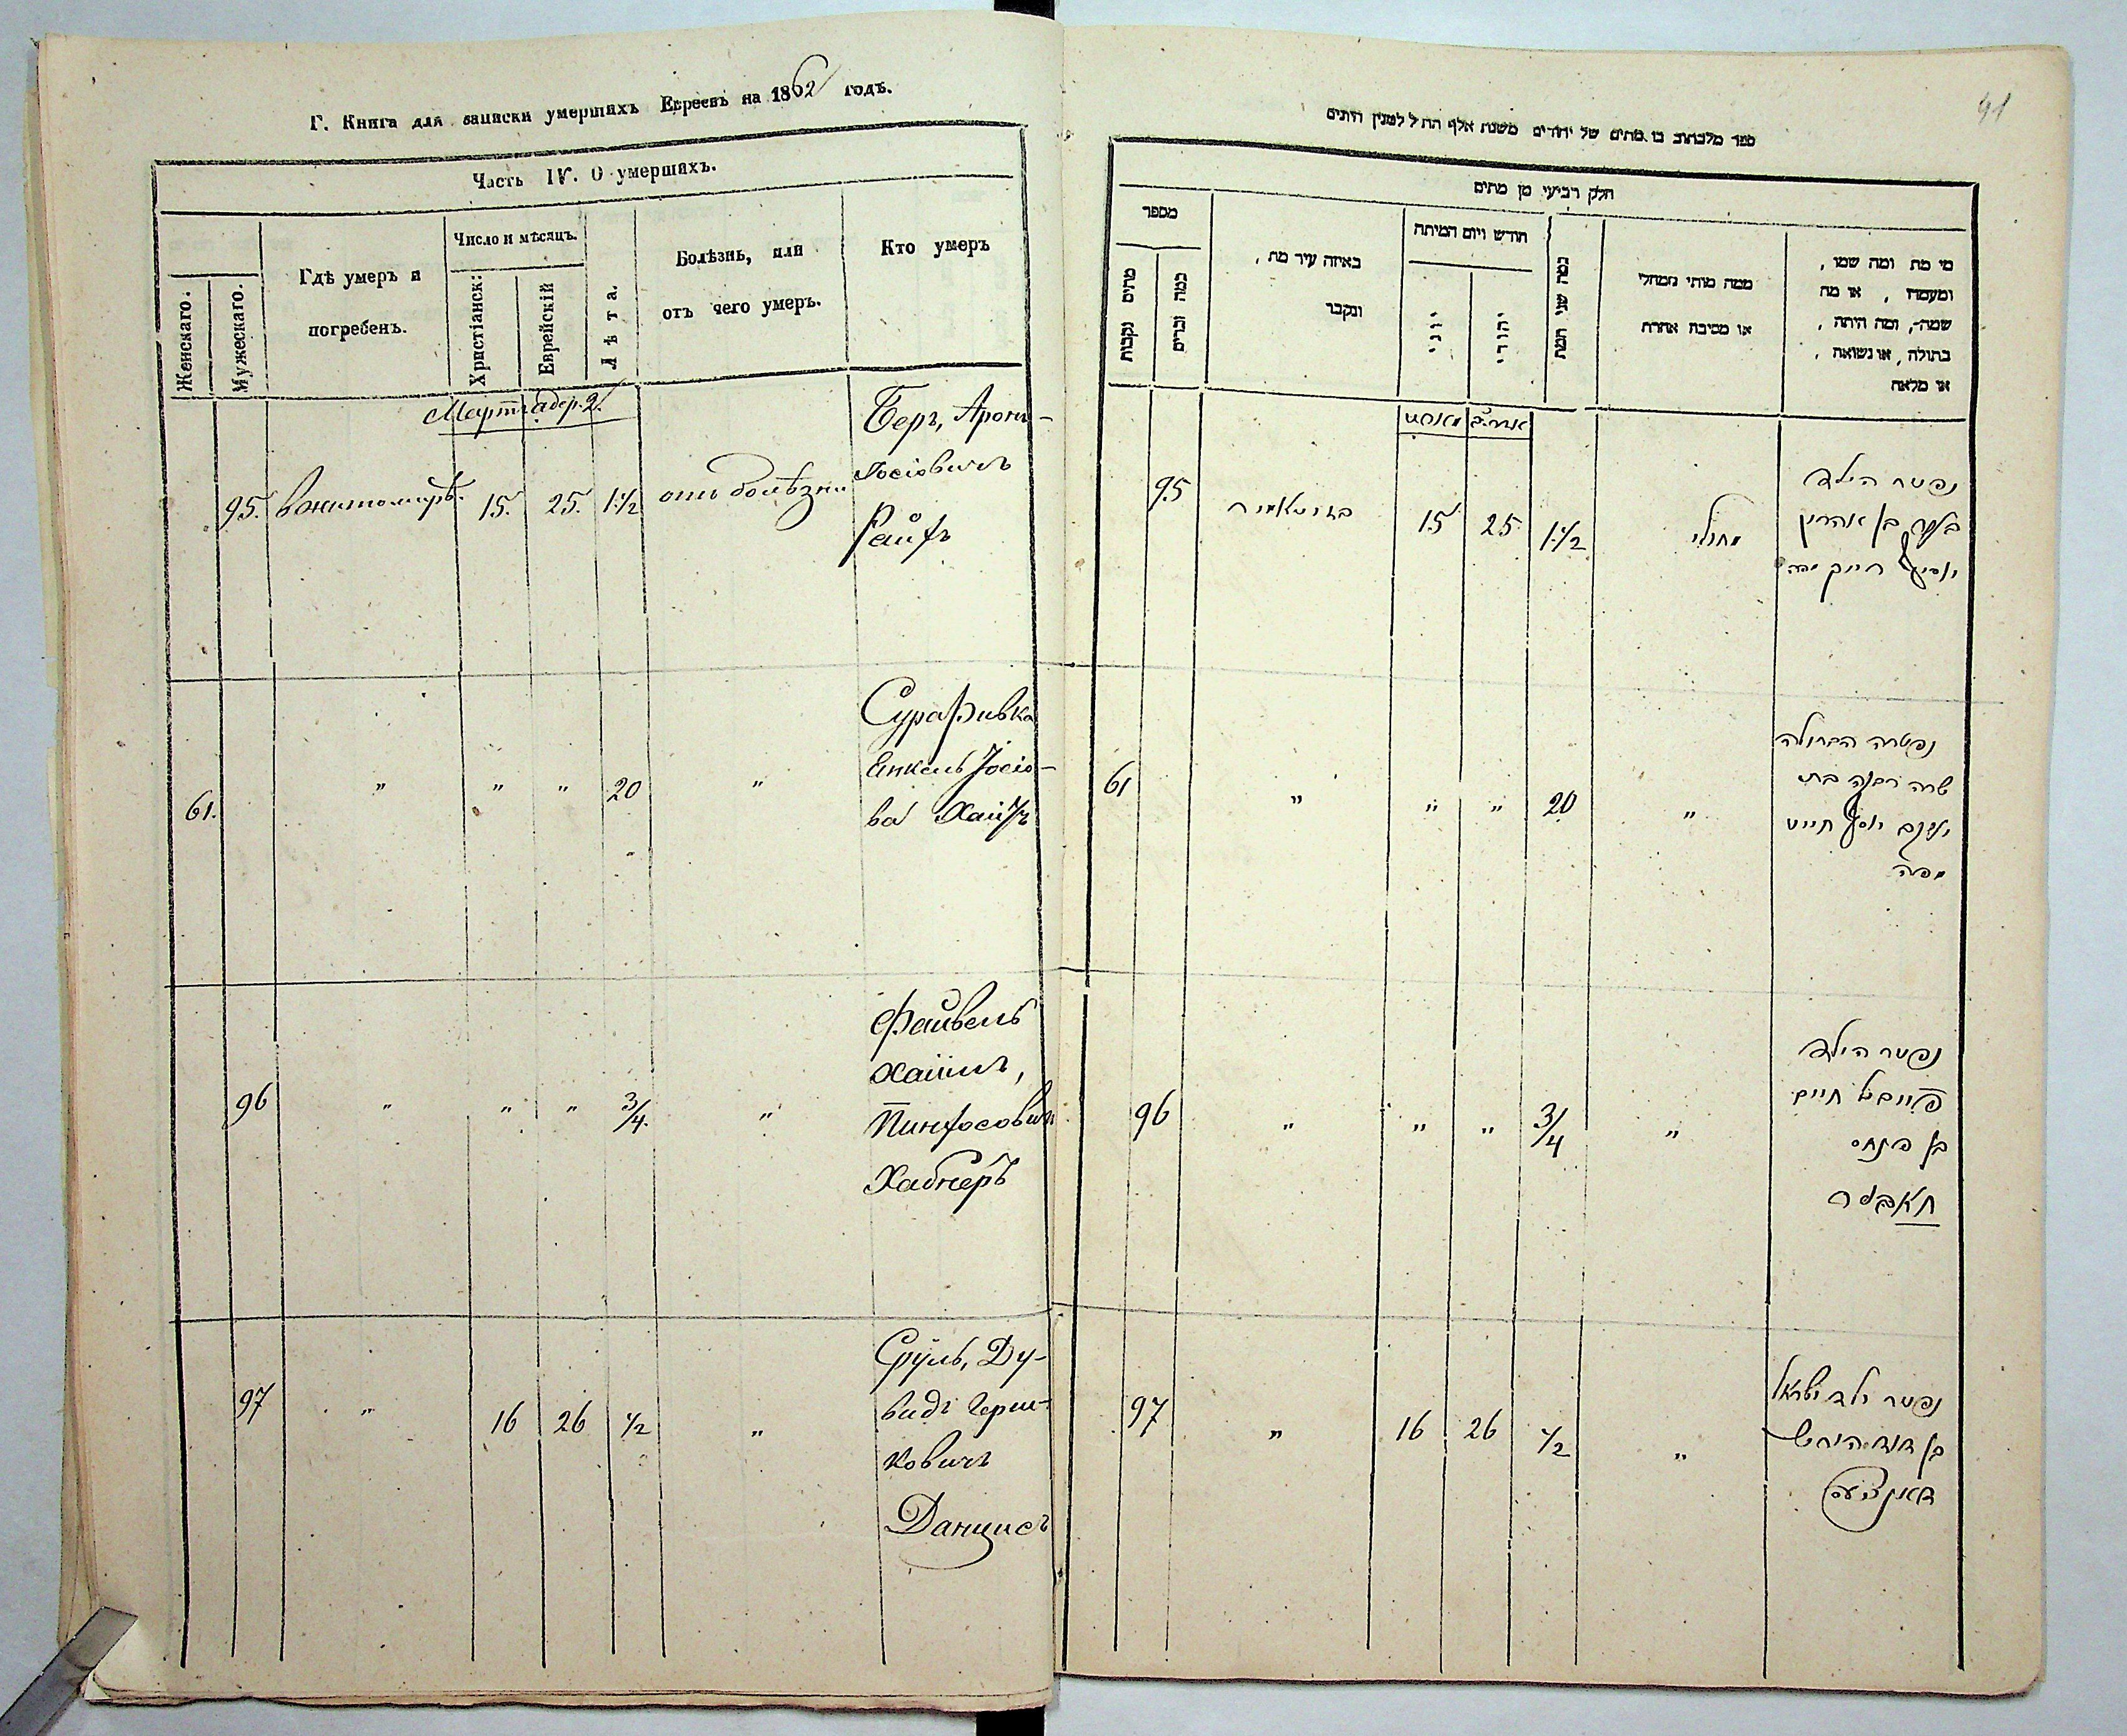 Г. Книга для записки умершихъ Евреевъ на 1862 годъ.
Часть IV. О умершихъ.
Женскаго.
Мужескаго.
Гдѣ умеръ и
погребенъ.
Число и мѣсяцъ.
Христіанск:
Еврейскій
Лѣта.
Болѣзнь, или
отъ чего умеръ.
Кто умеръ
Мартъ адер. 2.
95. вжитомирѣ. 15. 25. 1 1/2 отъ болѣзни
Беръ, Аронъ-
Іосіовичъ
61. " " " 20 "
Сура Ривка
Янкель Іосіо-
ва
96 " " " 3/4. "
Файвель
Хаіимъ,
Пинхосовичъ
Хабнеръ
97 " 16 26 1/2 "
Сруль, Ду-
видъ Герш-
ковичъ
Данцисъ
41
חלק רביעי מן מתים
מספר
מתים נקבות
כמה זכרים
באיזה עיר מת,
ונקבר
חודש ויום המיתה
יוני
יהודי
כמה שני המת
ממה מותו ממחלי
או מסיבה אחרת
מי מת ומה שמו,
ומעמדו, או מה
שמה, ומה היתה,
בתולה, או נשואה,
או מלאה
95 בזיטאמיר 15 25 1 1/2 מחולי
נפטר הילד
בן אהרון
61 " " " 20 "
נפטרה הבתולה
שרה רבקה בת
יעקב יוסף
96 " " " 3/4 "
נפטר הילד
פייבל חיים
בן פנחס
חאבנר
97 " 16 26 1/2 "
נפטר ילד ישראל
בן דוד הירש